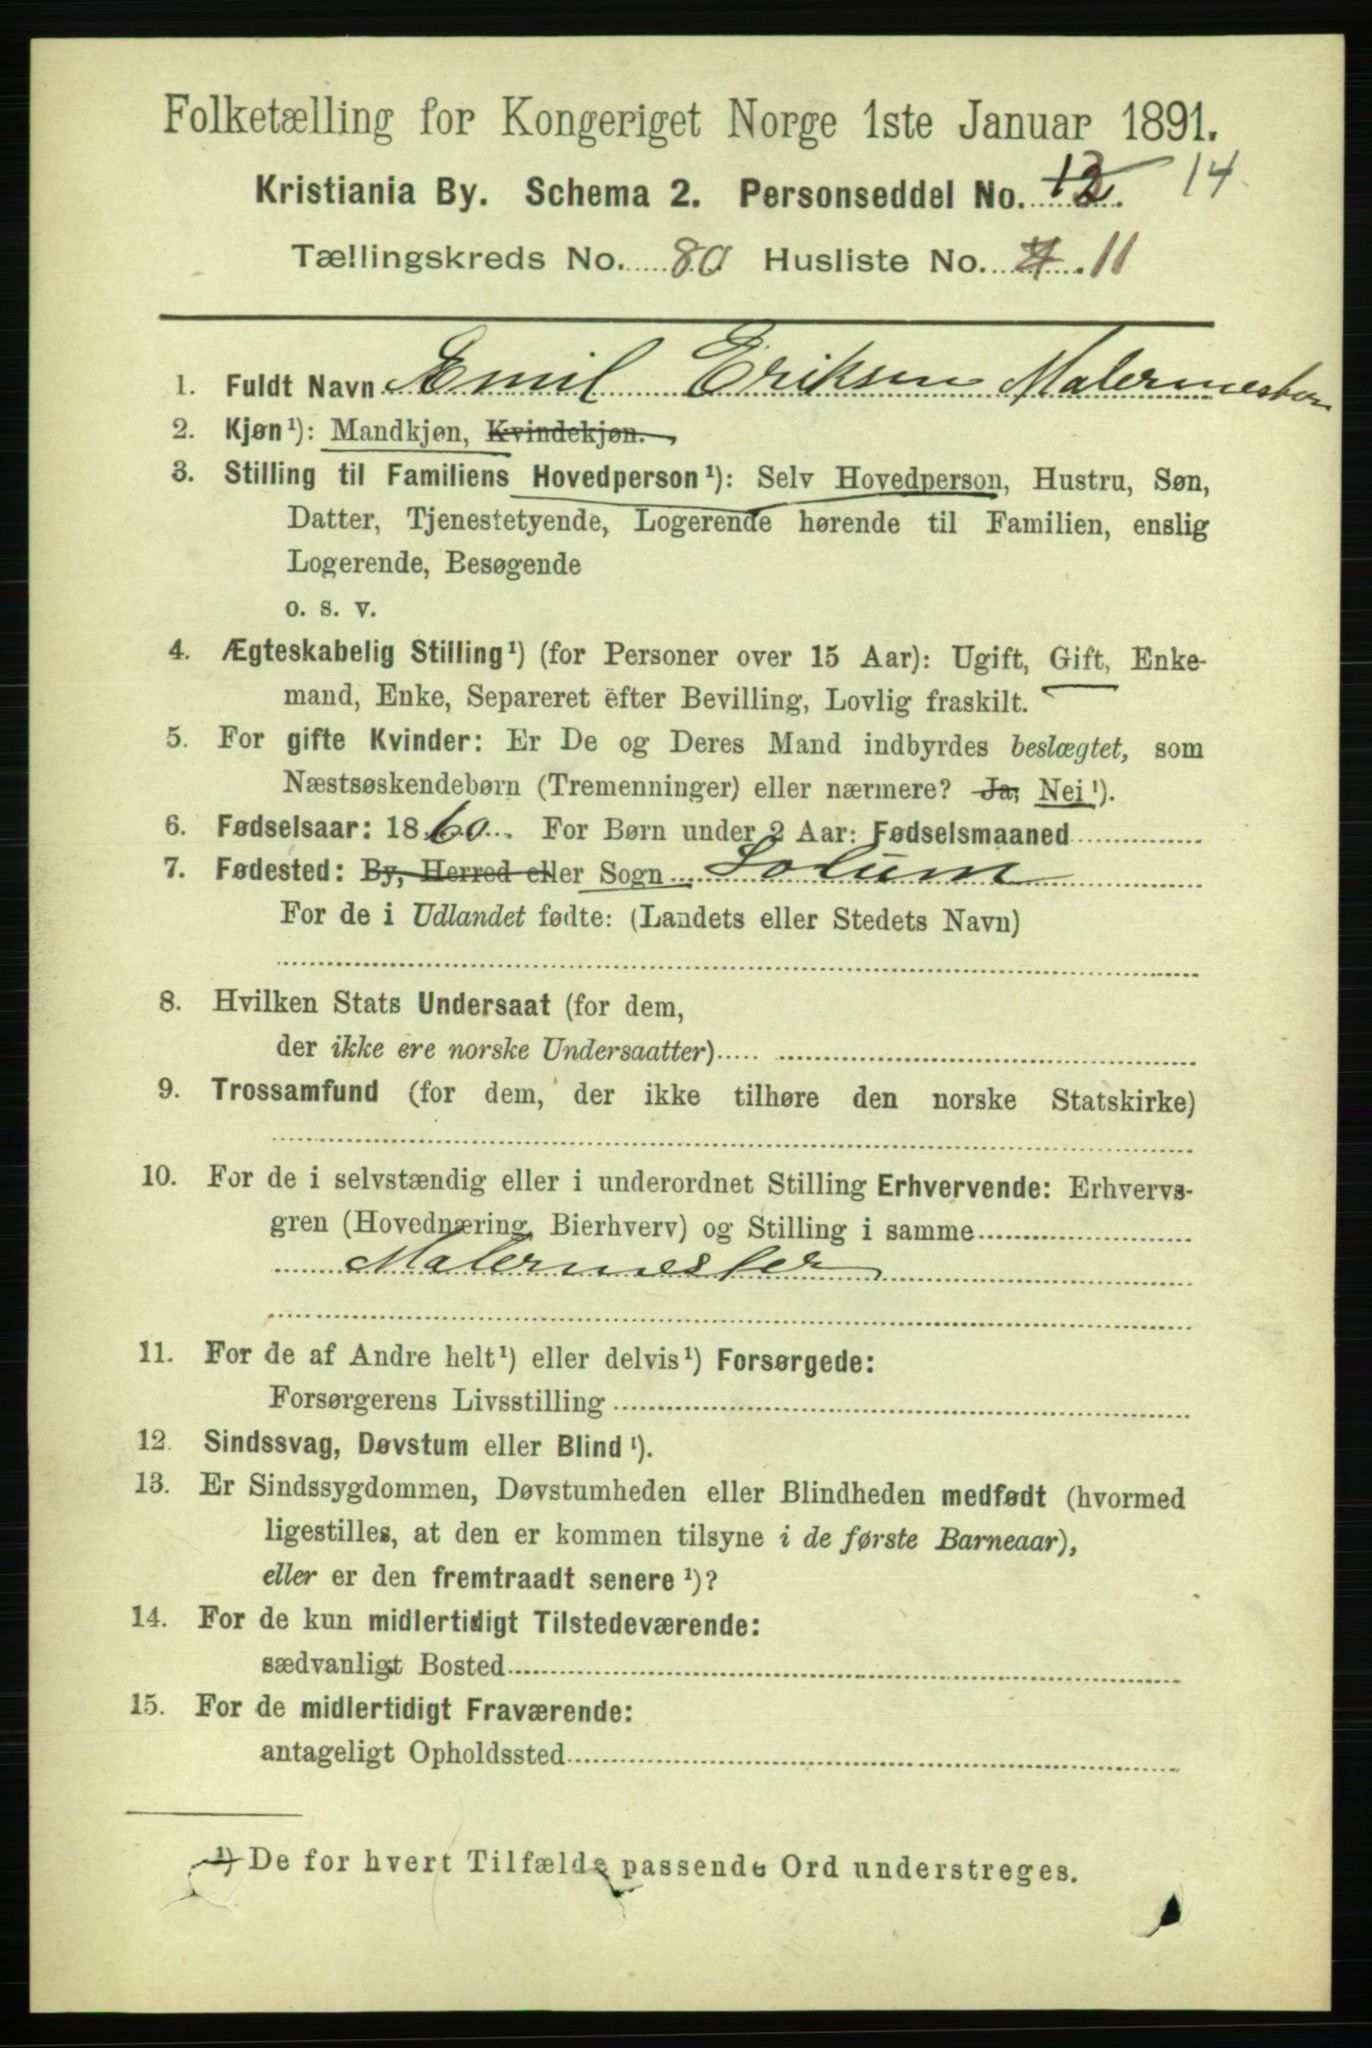 Folketælling for Kongeriget Norge 1ste Januar 1891.
Kristiania By. Schema 2. Personseddel No. 12. 14
Tællingskreds No. 80 Husliste No. 11
1. Fuldt Navn Emil Eriksen Malermester
2. Kjøn¹): Mandkjøn, Kvindekjøn.
3. Stilling til Familiens Hovedperson¹): Selv Hovedperson, Hustru, Søn,
Datter, Tjenestetyende, Logerende hørende til Familien, enslig
Logerende, Besøgende
o. s. v.
4. Ægteskabelig Stilling¹) (for Personer over 15 Aar): Ugift, Gift, Enke-
mand, Enke, Separeret efter Bevilling, Lovlig fraskilt.
5. For gifte Kvinder: Er De og Deres Mand indbyrdes beslægtet, som
Næstsøskendebørn (Tremenninger) eller nærmere? Ja, Nei¹).
6. Fødselsaar: 1860. For Børn under 2 Aar: Fødselsmaaned
7. Fødested: By, Herred eller Sogn Solum
For de i Udlandet fødte: (Landets eller Stedets Navn)
8. Hvilken Stats Undersaat (for dem,
der ikke ere norske Undersaatter)
9. Trossamfund (for dem, der ikke tilhøre den norske Statskirke)
10. For de i selvstændig eller i underordnet Stilling Erhvervende: Erhvervs-
gren (Hovednæring, Bierhverv) og Stilling i samme
Malermester
11. For de af Andre helt¹) eller delvis¹) Forsørgede:
Forsørgerens Livsstilling
12. Sindssvag, Døvstum eller Blind¹).
13. Er Sindssygdommen, Døvstumheden eller Blindheden medfødt (hvormed
ligestilles, at den er kommen tilsyne i de første Barneaar),
eller er den fremtraadt senere¹)?
14. For de kun midlertidigt Tilstedeværende:
sædvanligt Bosted
15. For de midlertidigt Fraværende:
antageligt Opholdssted
¹) De for hvert Tilfælde passende Ord understreges.